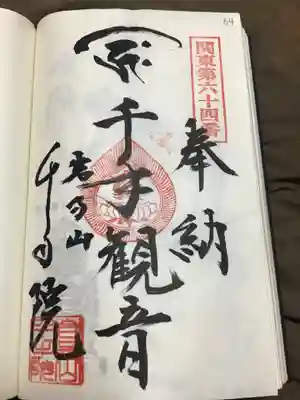 64
関東第六十四番
奉納
千手観音
山
千手院